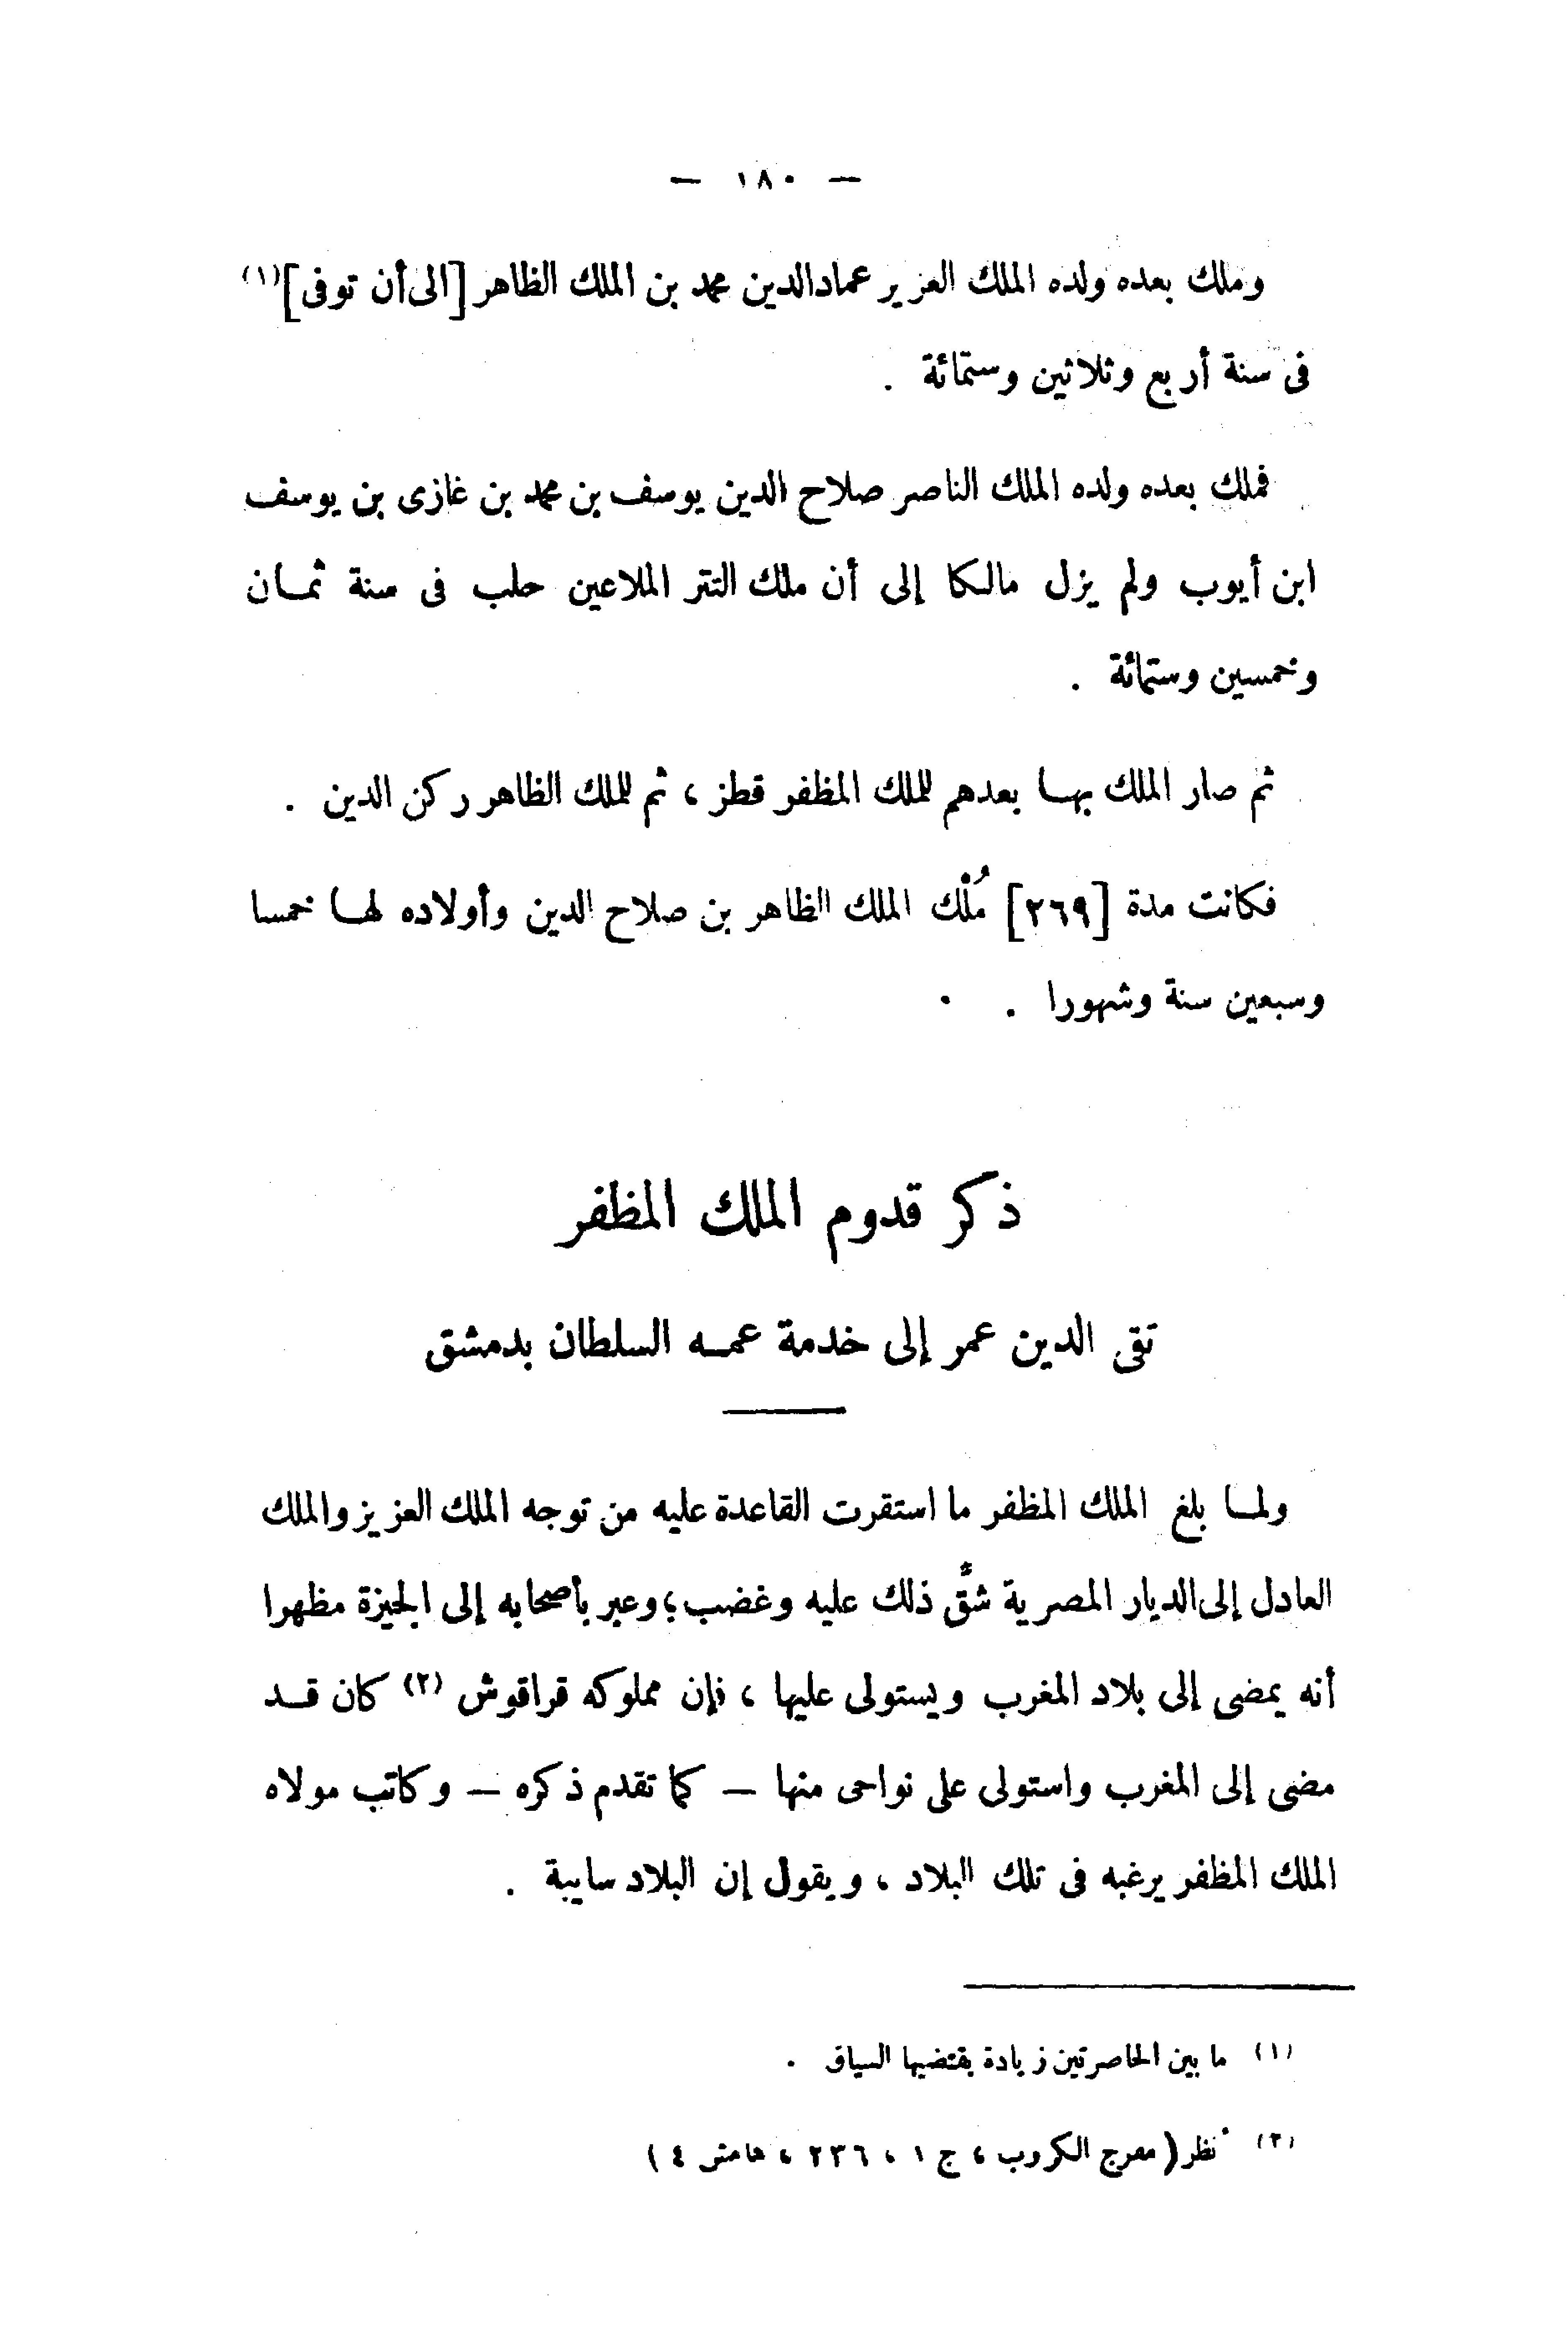 — ١٨٠ —
وملك بعده ولده الملك العزيز عماد الدين محمد بن الملك الظاهر [إلى أن توفى] (١)
فى سنة أربع وثلاثين وستمائة .
فملك بعده ولده الملك الناصر صلاح الدين يوسف بن محمد بن غازى بن يوسف
ابن أيوب ولم يزل مالكا إلى أن ملك التتر الملاعين حلب فى سنة ثمان
وخمسين وستمائة .
ثم صار الملك بها بعدهم للملك المظفر قطز ، ثم للملك الظاهر ركن الدين .
فكانت مدة [٢٦٩] مُلْك الملك الظاهر بن صلاح الدين وأولاده لها خمسا
وسبعين سنة وشهورا .
ذكر قدوم الملك المظفر
تقى الدين عمر إلى خدمة عمه السلطان بدمشق
ولما بلغ الملك المظفر ما استقرت القاعدة عليه من توجه الملك العزيز والملك
العادل إلى الديار المصرية شقَّ ذلك عليه وغضب ؛ وعبر بأصحابه إلى الجيزة مظهرا
أنه يمضى إلى بلاد المغرب ويستولى عليها ، فإن مملوكه قراقوش (٢) كان قد
مضى إلى المغرب واستولى على نواحى منها — كما تقدم ذكره — وكاتب مولاه
الملك المظفر يرغبه فى تلك البلاد ، ويقول إن البلاد سايبة .
(١) ما بين الحاصرتين زيادة يقتضيها السياق .
(٢) انظر (مفرج الكروب ، ج ١ ، ٢٣٦ ، هامش ٤ )